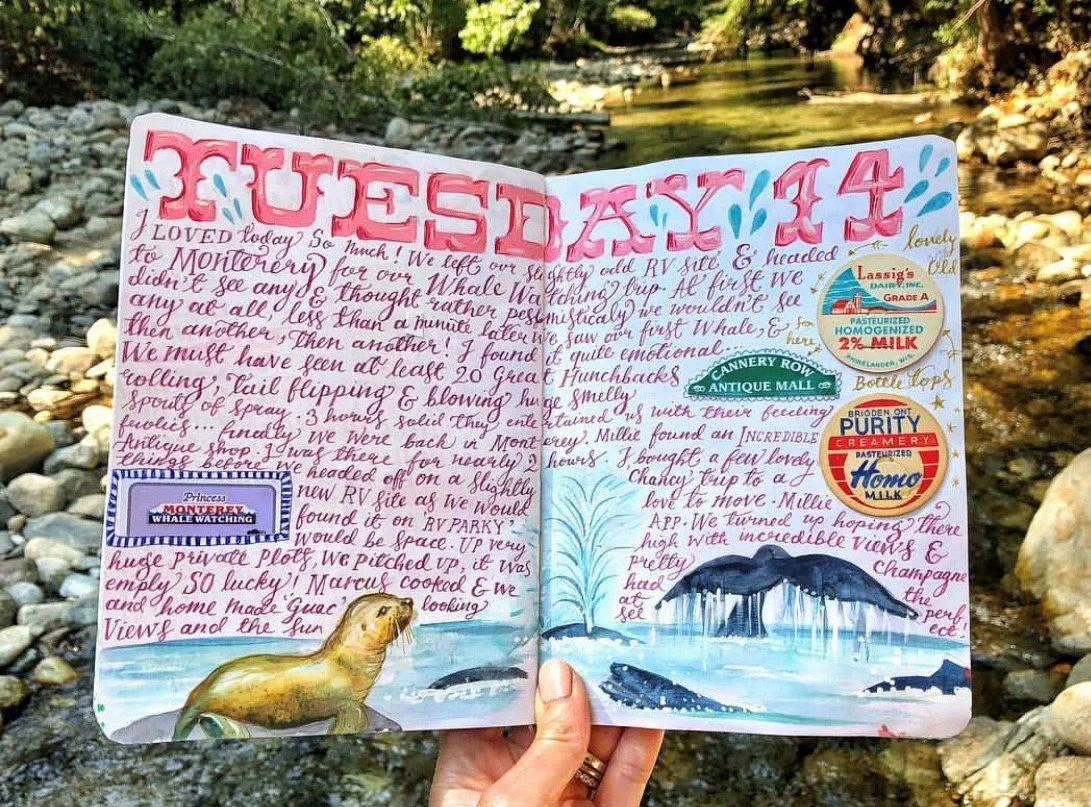 TUESDAY 14
I LOVED today So much! We left our slightly odd RV site & headed
to Monterery for our Whale Watching trip. At first We
didn't see any & thought rather pessimisticaly we wouldn't see
any at all, less than a minute later We saw our first Whale, &
then another, then another! I found it quite emotional...
We must have seen at least 20 Great Hunchbacks
rolling, tail flipping & blowing huge smelly
spouts of spray. 3 hours solid they entertained us with their feeding
frolics... finally we were back in Monterey. Millie found an INCREDIBLE
Antique shop. I was there for nearly 2 hours. I bought a few lovely
things before we headed off on a slightly Chancy trip to a
new RV site as we would love to move. Millie
found it on 'RV PARKY' APP. We turned up hoping there
would be space. Up very high with incredible views &
huge private plots, we pitched up, it was pretty
empty SO lucky! Marcus cooked & we had Champagne
and home made 'Guac' looking at the
Views and the Sun set perfect!
lovely
old
Lassig's
DAIRY, INC.
GRADE A
PASTEURIZED
HOMOGENIZED
2% MILK
RHINELANDER, WIS.
here
Bottle tops
CANNERY ROW
ANTIQUE MALL
BRIGDEN, ONT.
PURITY
CREAMERY
PASTEURIZED
Homo
MILK
Princess
MONTEREY
WHALE WATCHING